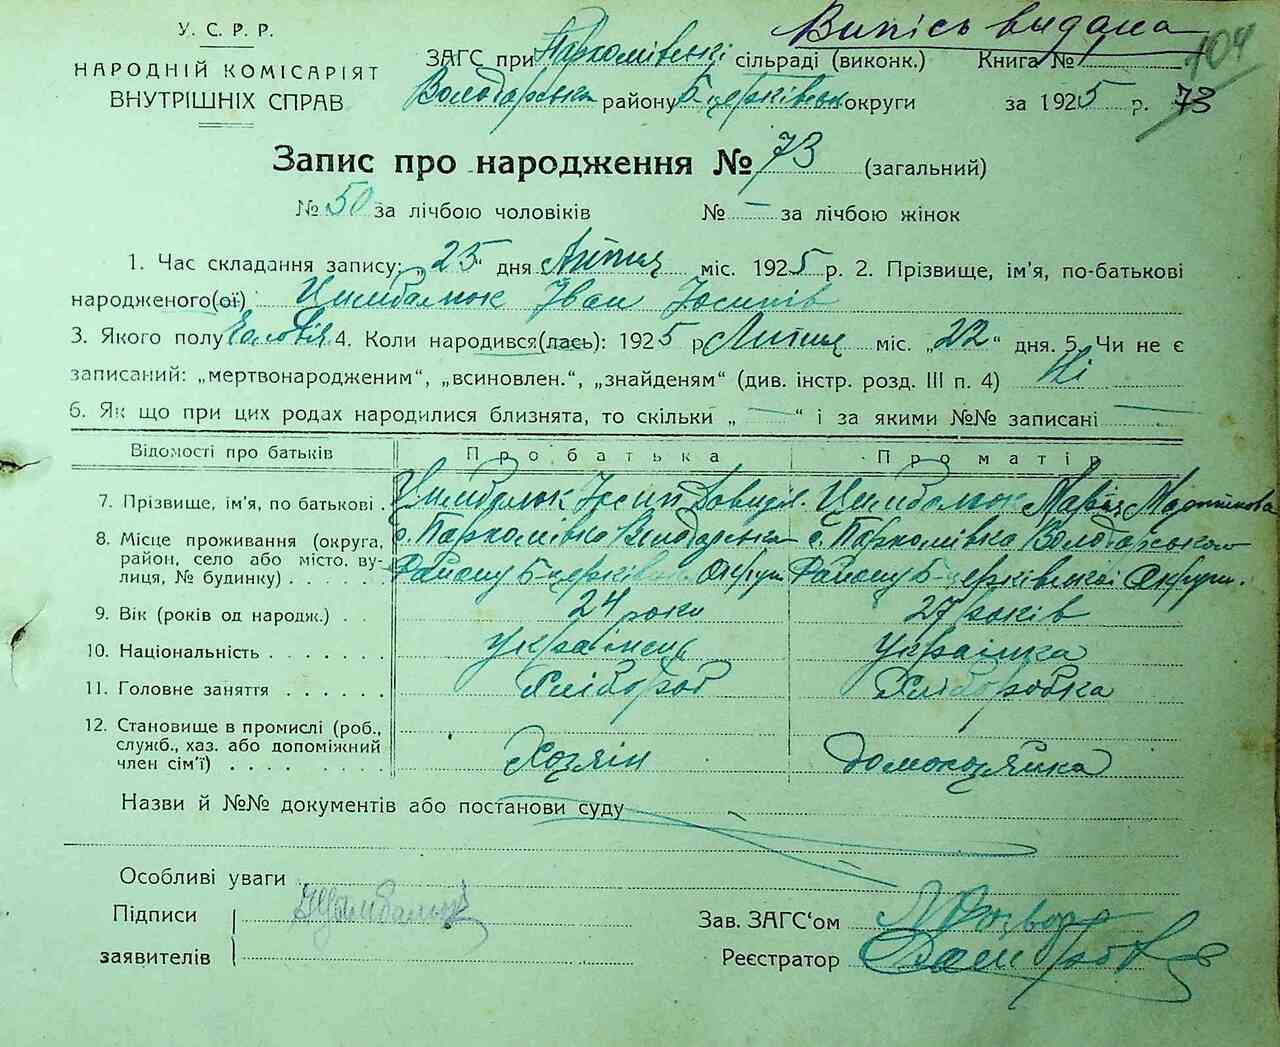 У. С. Р. Р.
НАРОДНІЙ КОМІСАРІЯТ
ВНУТРІШНІХ СПРАВ
Випись видана
104
ЗАГС при Пархомівські сільраді (виконк.) Книга №
Володарськ району Б-церківськ округи за 1925 р. 73
Запис про народження № 73 (загальний)
№ 50 за лічбою чоловіків № — за лічбою жінок
1. Час складання запису: „25“ дня Липня міс. 1925 р. 2. Прізвище, ім’я, по-батькові
народженого(ої) Цимбалюк Іван Йосипів
3. Якого полу 4. Коли народився(лась): 1925 р Липня міс. „22“ дня. 5. Чи не є
записаний: „мертвонародженим“, „всиновлен.“, „знайденям“ (див. інстр. розд. III п. 4) Ні
6. Як що при цих родах народилися близнята, то скільки „ — “ і за якими №№ записані —
Відомості про батьків Про батька Про матір
7. Прізвище, ім’я, по батькові . Цимбалюк Йосип Цимбалюк Марія
8. Місце проживання (округа, с. Пархомівка Володарськ с. Пархомівка Володарського
район, село або місто, ву-
лиця, № будинку) . . . . . Району Б-церків Округи Району Б-церківської Округи.
9. Вік (років од народж.) . . 24 роки 27 років
10. Національність . . . . . . . Українець Українка
11. Головне заняття . . . . . . Хлібороб Хліборобка
12. Становище в промислі (роб.,
служб., хаз. або допоміжний
член сім’ї) . . . . . . . . Хозяїн домохозяйка
Назви й №№ документів або постанови суду
Особливі уваги
Підписи Цымбалюк Зав. ЗАГС‘ом
заявителів Реєстратор